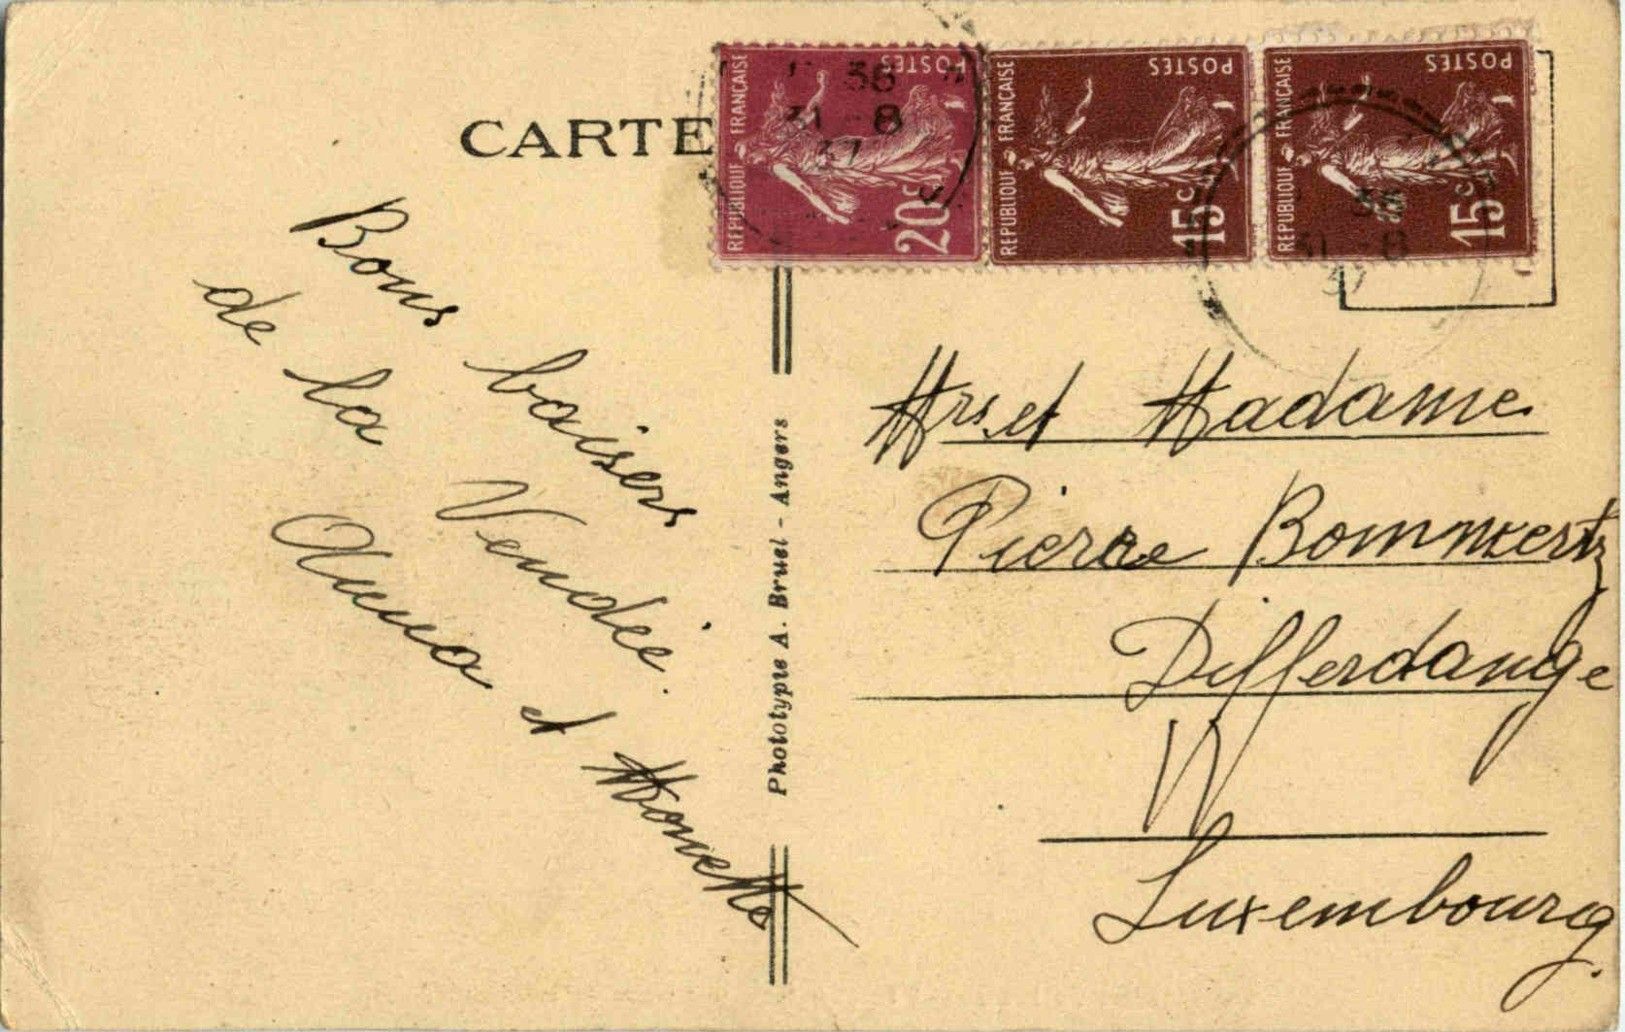 CARTE
REPUBLIQUE FRANÇAISE
POSTES
20c
REPUBLIQUE FRANÇAISE
POSTES
15c
REPUBLIQUE FRANÇAISE
POSTES
15c
36
31-8
37
36
31-8
37
Bons baisers
de la Vendée.
Anna et Monette
Phototypie A. Bruel - Angers
Mrs et Madame
Pierre Bommertz
Differdange
Luxembourg.